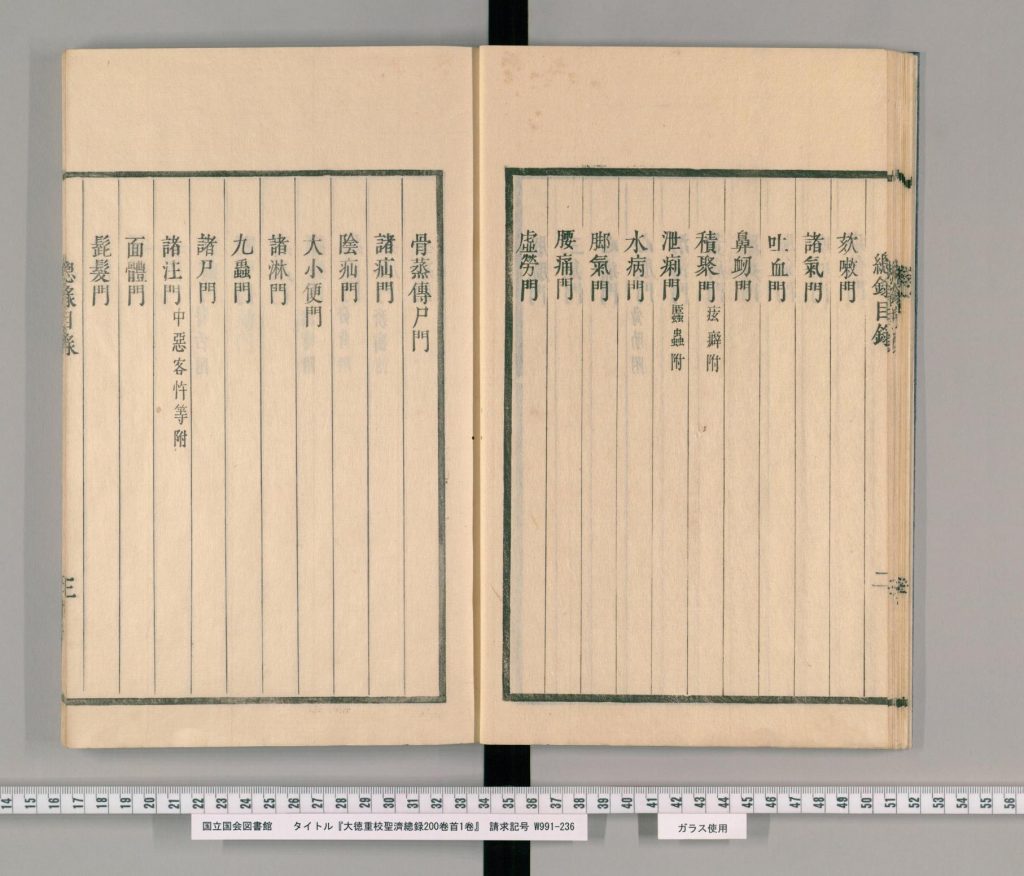 總錄目錄
二
欬嗽門
諸氣門
吐血門
鼻衂門
積聚門痃癖附
泄痢門䘌蟲附
水病門
脚氣門
腰痛門
虛勞門
骨蒸傳尸門
諸疝門
陰疝門
大小便門
諸淋門
九蟲門
諸尸門
諸注門中惡客忤等附
面體門
髭髮門
總錄目錄
三
14 15 16 17 18 19 20 21 22 23 24 25 26 27 28 29 30 31 32 33 34 35 36 37 38 39 40 41 42 43 44 45 46 47 48 49 50 51 52 53 54 55 56
国立国会図書館 タイトル『大徳重校聖済總録200巻首1巻』 請求記号 W991-236
ガラス使用